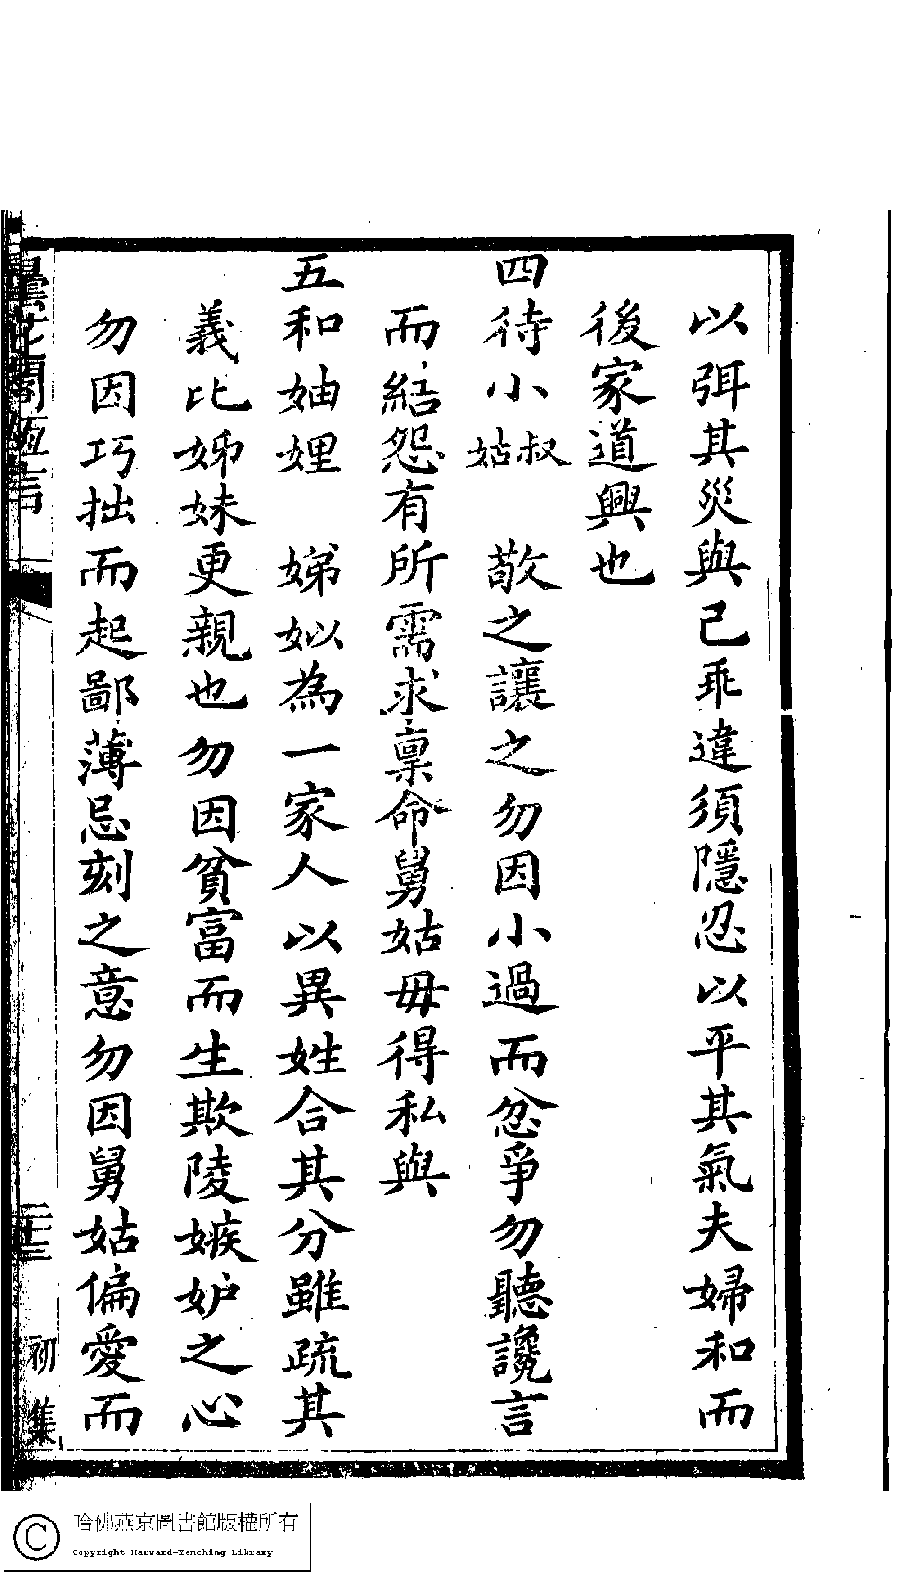 以弭其災與己乖違須隱忍以平其氣夫婦和而
後家道興也
四待小叔姑 敬之讓之勿因小過而忿爭勿聽讒言
而結怨有所需求稟命舅姑毋得私與
五和妯娌 娣姒為一家人以異姓合其分雖疏其
義比姊妹更親也勿因貧富而生欺陵嫉妒之心
勿因巧拙而起鄙薄忌刻之意勿因舅姑偏愛而
曇花閣恆言
二十三
初集
哈佛燕京圖書館版權所有
Copyright Harvard-Yenching Library